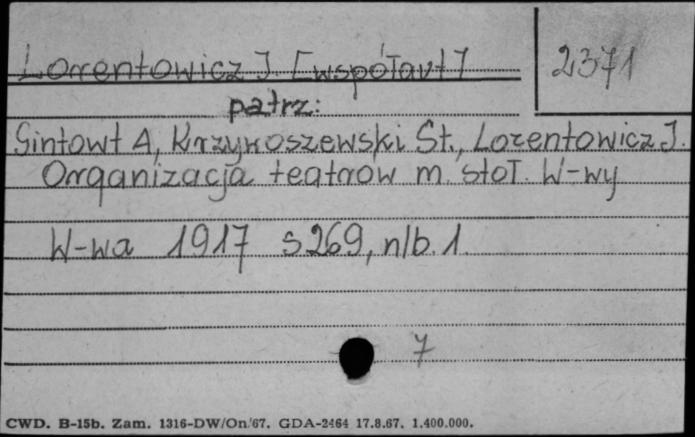 Lorentowicz J [współaut]
2371
patrz:
Sintowt A, Krzywoszewski St., Lorentowicz J.
Organizacja teatrow m. stoł. W-wy
W-wa 1917 s 269, nlb. 1.
7
CWD. B-15b. Zam. 1316-DW/On/67. GDA-2464 17.8.67. 1.400.000.